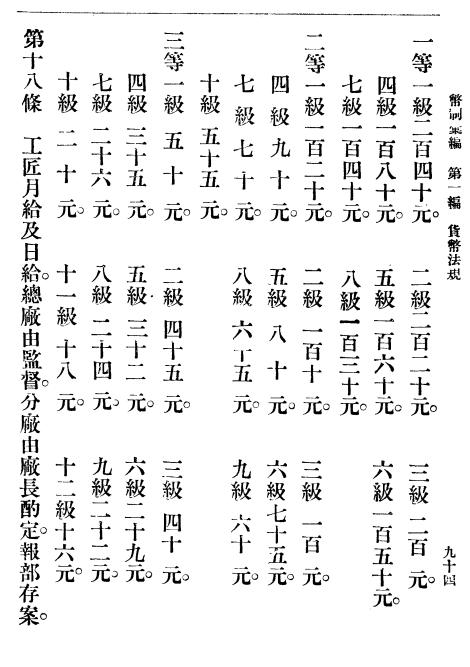 幣制彙編　第一編　貨幣法規
九十四
一等一級二百四十元。　二級二百二十元。　三級二百元。
四級一百八十元。　五級一百六十元。　六級一百五十元。
七級一百四十元。　八級一百三十元。
二等一級一百二十元。　二級一百十元。　三級一百元。
四級九十元。　五級八十元。　六級七十五元。
七級七十元。　八級六十五元。　九級六十元。
十級五十五元。
三等一級五十元。　二級四十五元。　三級四十元。
四級三十五元。　五級三十二元。　六級二十九元。
七級二十六元。　八級二十四元。　九級二十二元。
十級二十元。　十一級十八元。　十二級十六元。
第十八條　工匠月給及日給。總廠由監督。分廠由廠長酌定。報部存案。